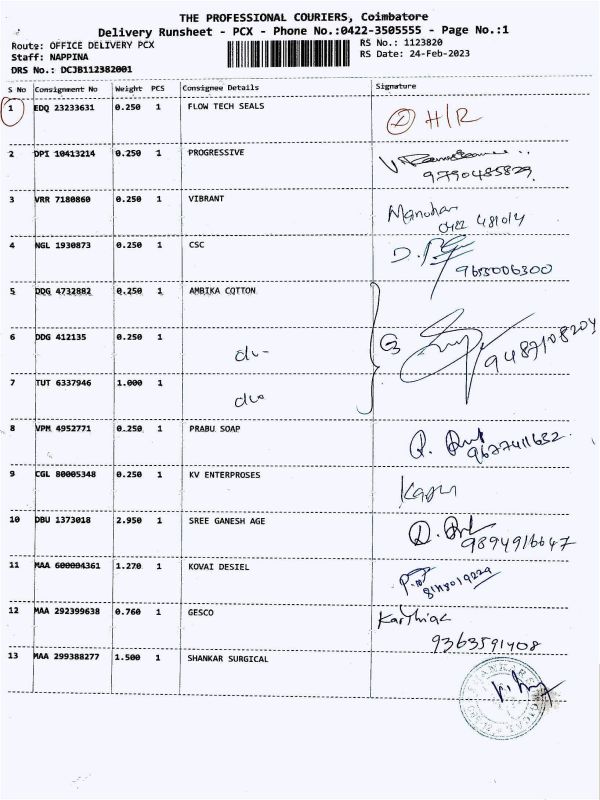 THE PROFESSIONAL COURIERS, Coimbatore
Delivery Runsheet - PCX - Phone No.:0422-3505555 - Page No.:1
Route: OFFICE DELIVERY PCX
Staff: NAPPINA
DRS No.: DCJB112382001
RS No.: 1123820
RS Date: 24-Feb-2023
S No Consignment No Weight PCS Consignee Details Signature
1 EDQ 23233631 0.250 1 FLOW TECH SEALS H/R
2 DPI 10413214 0.250 1 PROGRESSIVE
9790485829
3 VRR 7180860 0.250 1 VIBRANT Manohar
0422 481014
4 NGL 1930873 0.250 1 CSC
9655006300
5 DDG 4732882 0.250 1 AMBIKA COTTON
6 DDG 412135 0.250 1 9487108204
7 TUT 6337946 1.000 1
8 VPM 4952771 0.250 1 PRABU SOAP
9677411632
9 CGL 80005348 0.250 1 KV ENTERPROSES
10 DBU 1373018 2.950 1 SREE GANESH AGE
9894916647
11 MAA 600004361 1.270 1 KOVAI DESIEL
12 MAA 292399638 0.760 1 GESCO
9363591408
13 MAA 299388277 1.500 1 SHANKAR SURGICAL